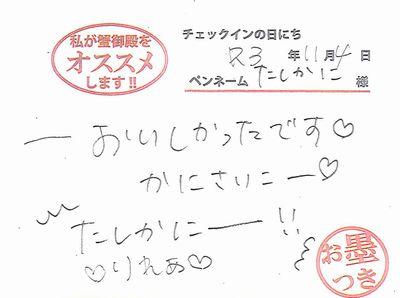 私が蟹御殿を
オススメ
します!!
チェックインの日にち
R3年11月4日
ペンネーム たしかに 様
おいしかったです♡
かにさいこー♡
たしかにー!!
♡りれあ♡
お墨
つき